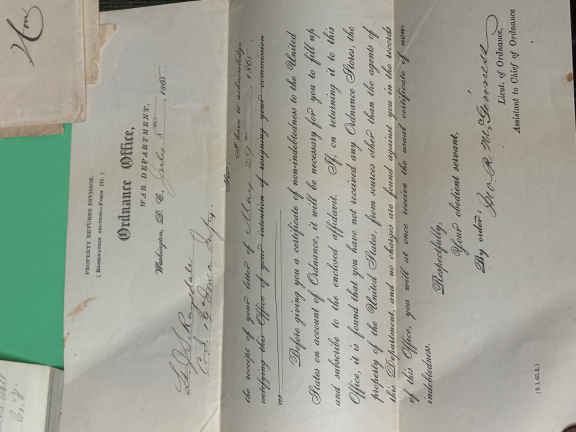 Hon
PROPERTY RETURNS DIVISION.
Ordnance Office,
WAR DEPARTMENT,
Washington, D. C., July 5 1865
Sir:
I have to acknowledge
the receipt of your letter of May 29 1865
notifying this Office of your intention of resigning your commission
as
Before giving you a certificate of non-indebtedness to the United
States on account of Ordnance, it will be necessary for you to fill up
and subscribe to the enclosed affidavit. If, on returning it to this
Office, it is found that you have not received any Ordnance Stores, the
property of the United States, from sources other than the agents of
this Department, and no charges are found against you in the records
of this Office, you will at once receive the usual certificate of non-
indebtedness.
Respectfully,
Your obedient servant,
By order,
Lieut. of Ordnance,
Assistant to Chief of Ordnance